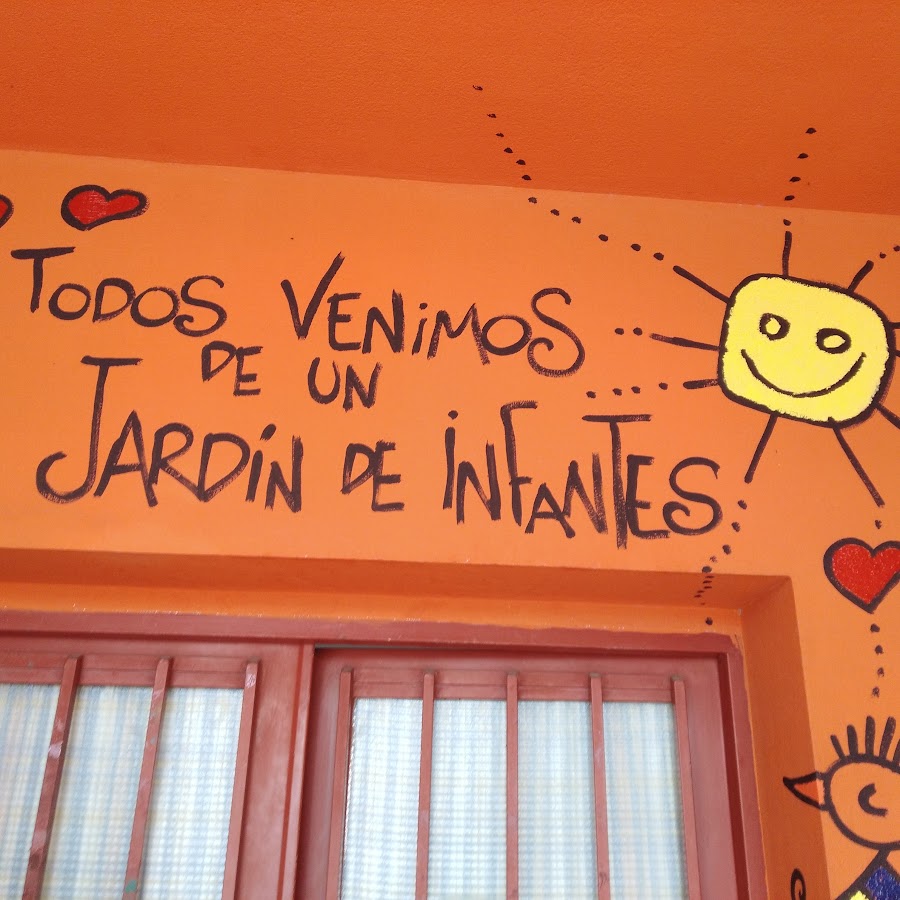 TODOS VENiMOS
DE UN
JARDíN DE iNFANTES